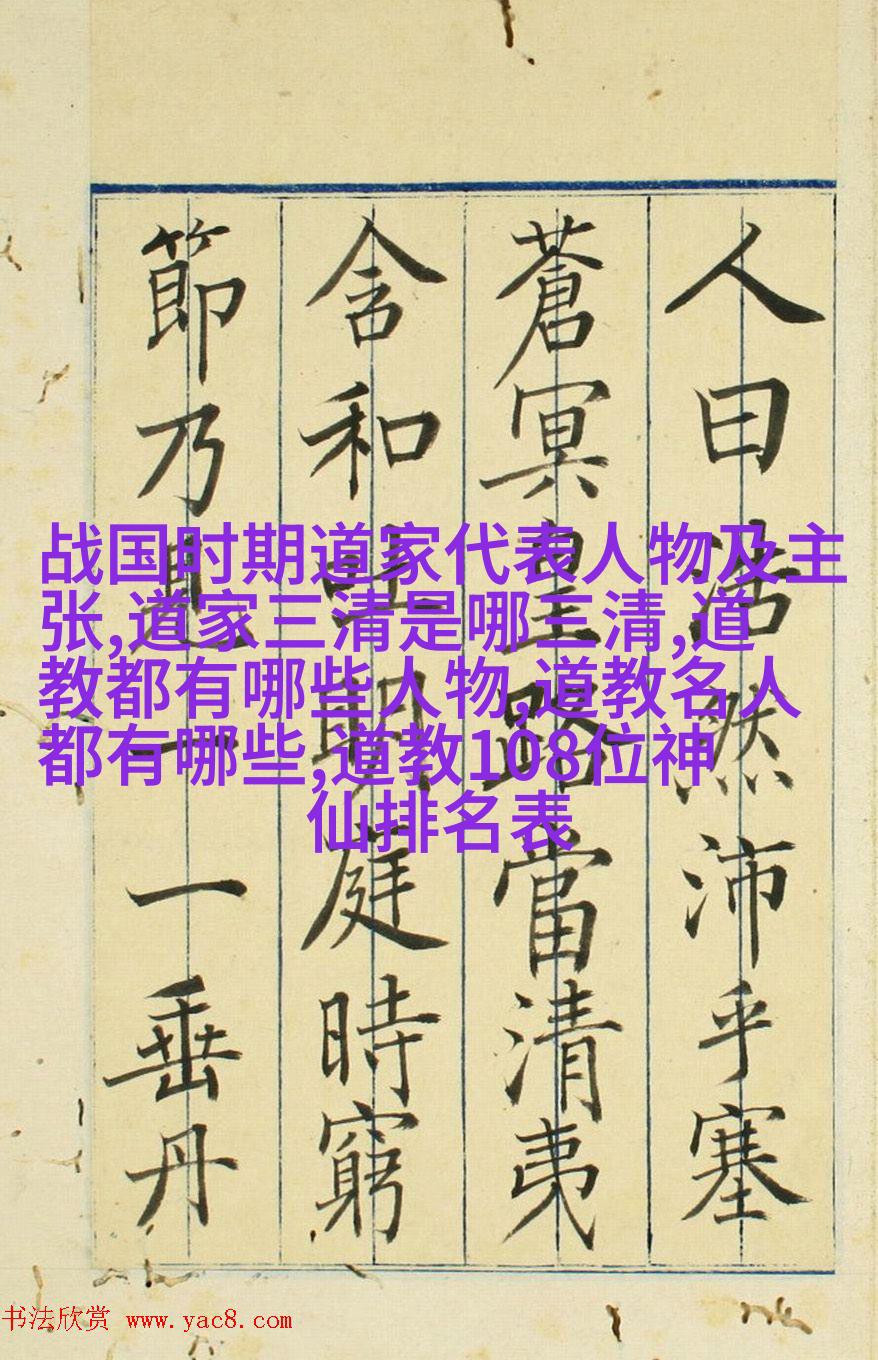 人曰浩然沛乎塞
蒼冥皇路當清夷
含和吐明庭時窮
節乃見一一垂丹
战国时期道家代表人物及主
张,道家三清是哪三清,道
教都有哪些人物,道教名人
都有哪些,道教108位神
仙排名表
书法欣赏 www.yac8.com